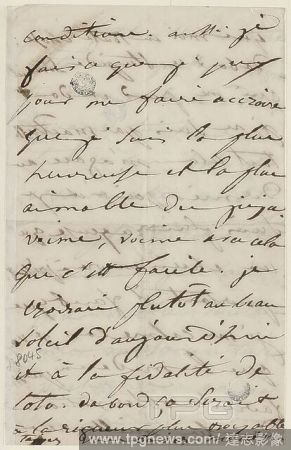 conditions. aussi je
fais ce que je peux
pour me faire accroire
que je suis la plus
heureuse et la plus
aimable des juju
voime, voime
que c'est facile. je
croirais plutôt au beau
soleil d'aujourd'hui
et à la fidélité de
toto. d'abord ça serait
à la rigueur plus
28045
TPG
www.tpgnews.com 達志影像